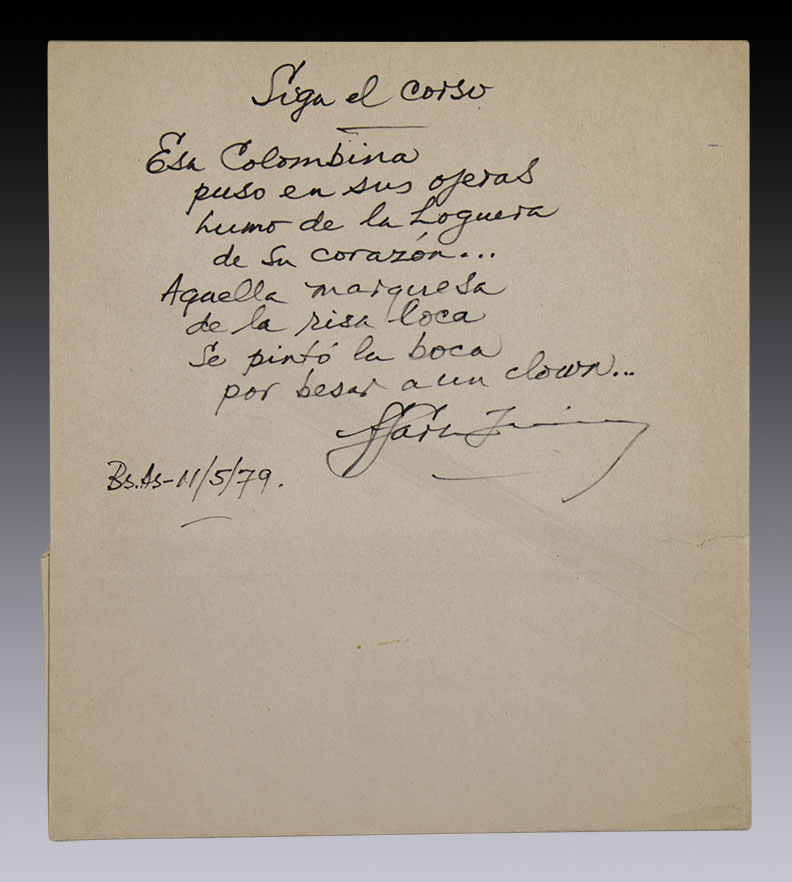 Siga el corso
Esa Colombina
puso en sus ojeras
humo de la hoguera
de su corazón...
Aquella marquesa
de la risa loca
se pintó la boca
por besar a un clown...
Bs.As-11/5/79.